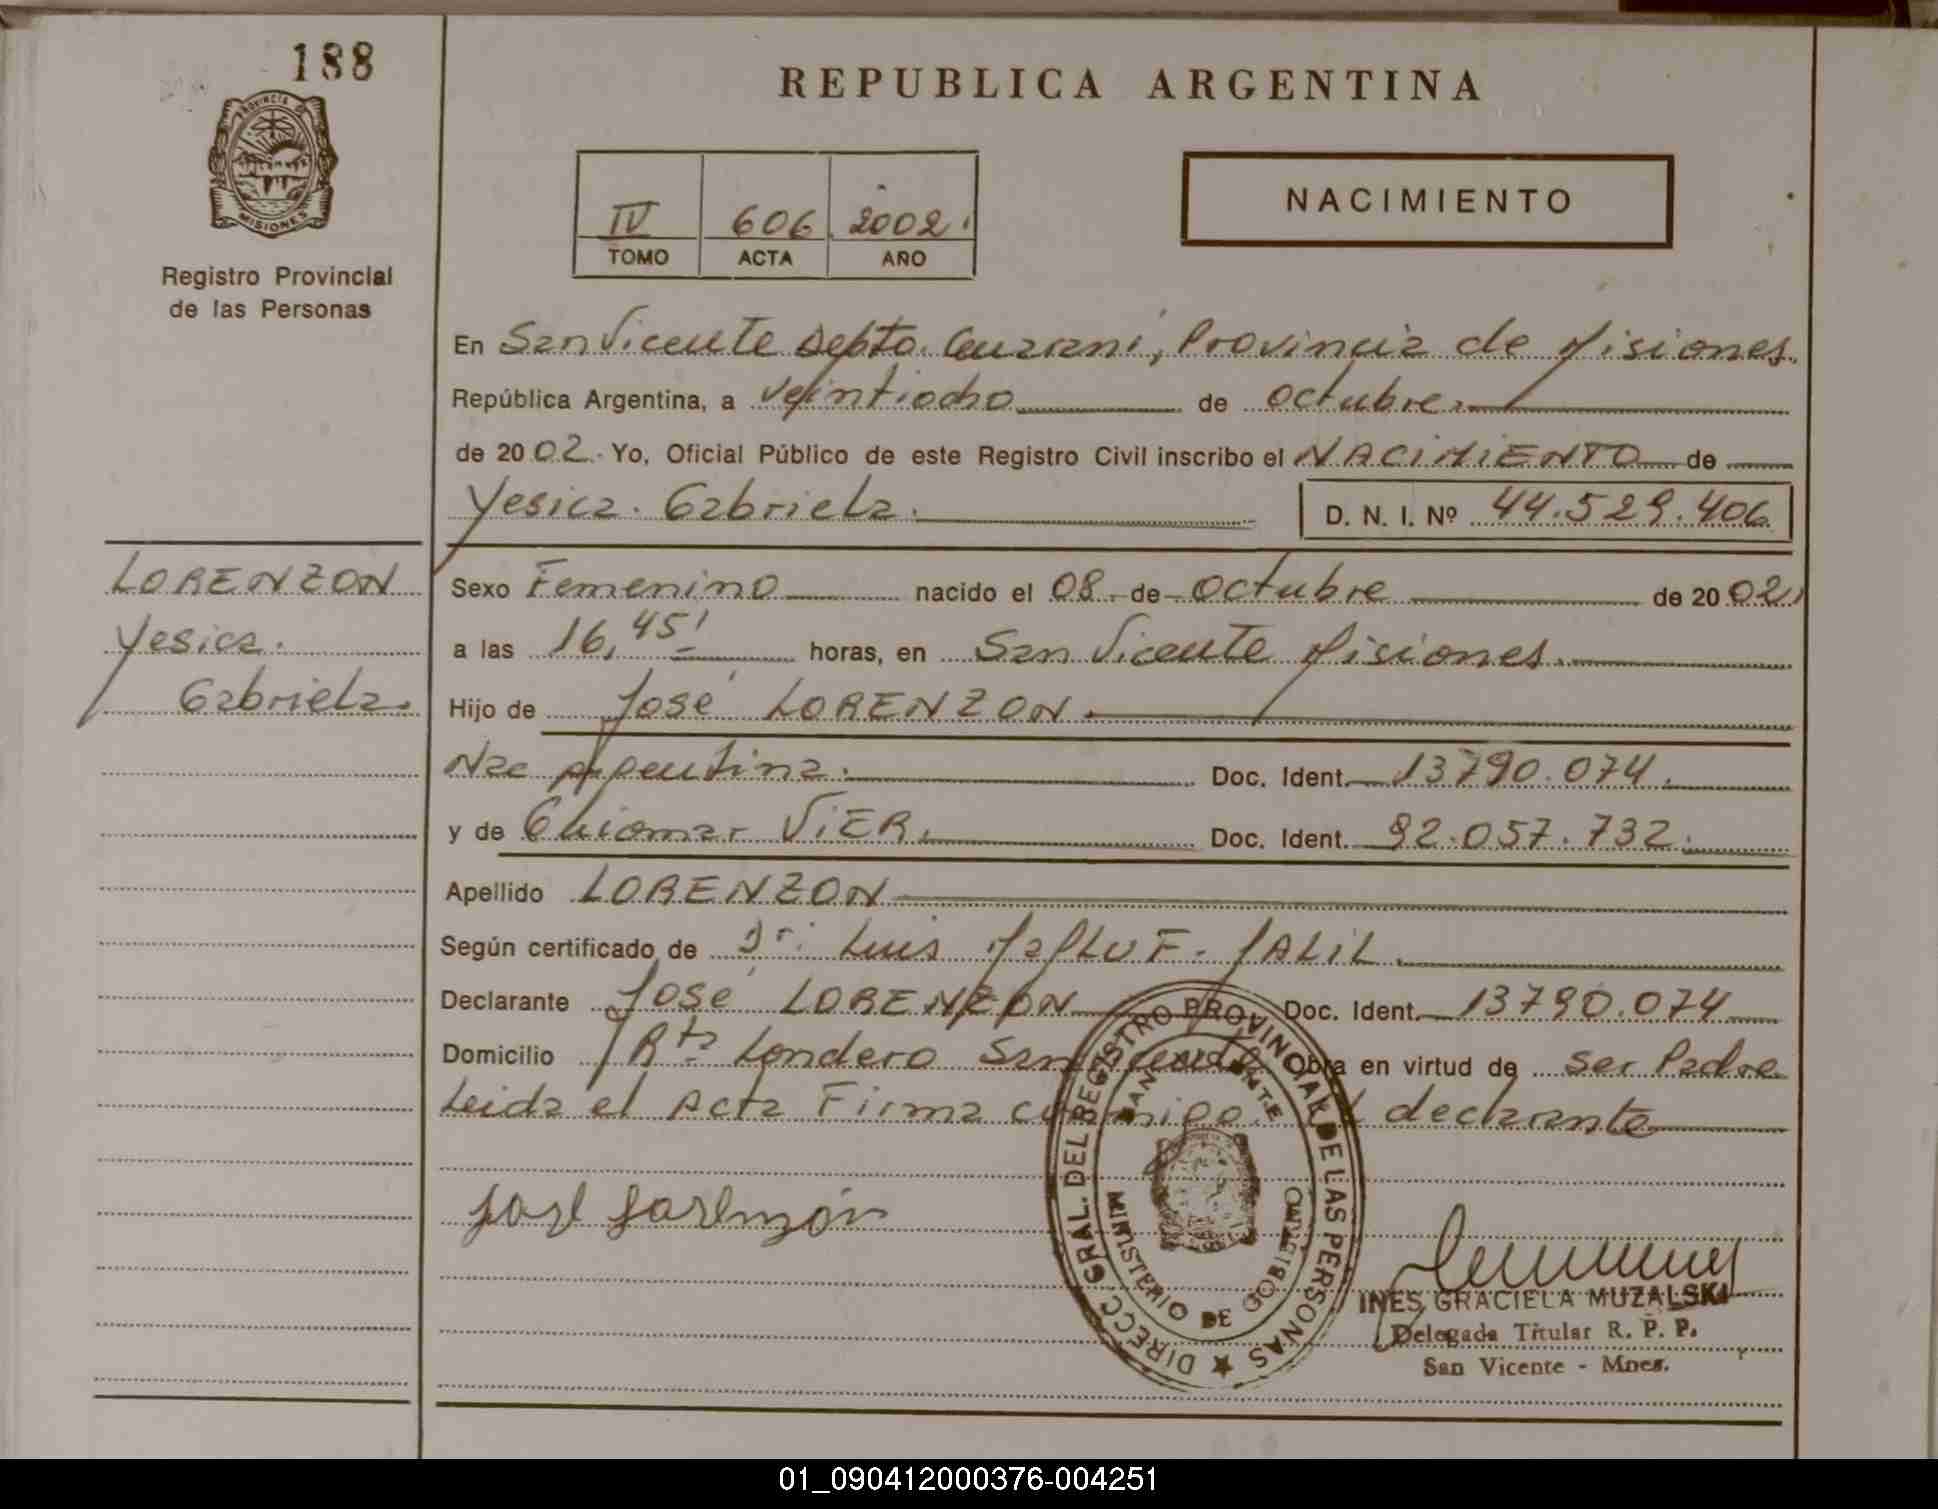 188
PROVINCIA DE
MISIONES
Registro Provincial
de las Personas
REPUBLICA ARGENTINA
IV 606 2002
TOMO ACTA AÑO
NACIMIENTO
En San Vicente Depto. Guarani, Provincia de Misiones.
República Argentina, a veintiocho de octubre.
de 2002. Yo, Oficial Público de este Registro Civil inscribo el NACIMIENTO de
Yesica. Gabriela. D. N. I. Nº 44.529.406
LORENZON
Yesica.
Gabriela.
Sexo Femenino nacido el 08 de octubre de 2002
a las 16,45' horas, en San Vicente Misiones.
Hijo de José LORENZON.
Nac Argentina. Doc. Ident. 13790.074.
y de Guiomar ViER. Doc. Ident. 92.057.732.
Apellido LORENZON
Según certificado de Dr. Luis JALiL.
Declarante José LORENZON Doc. Ident. 13790.074
Domicilio Londero San Vicente Obra en virtud de ser Padre
Leida el Acta Firma conmigo el declarante
José Lorenzón
DIRECC. GRAL. DEL REGISTRO PROVINCIAL DE LAS PERSONAS
SAN VICENTE
MINISTERIO DE GOBIERNO
INES GRACIELA MUZALSKI
Delegada Titular R. P. P.
San Vicente - Mnes.
01_090412000376-004251